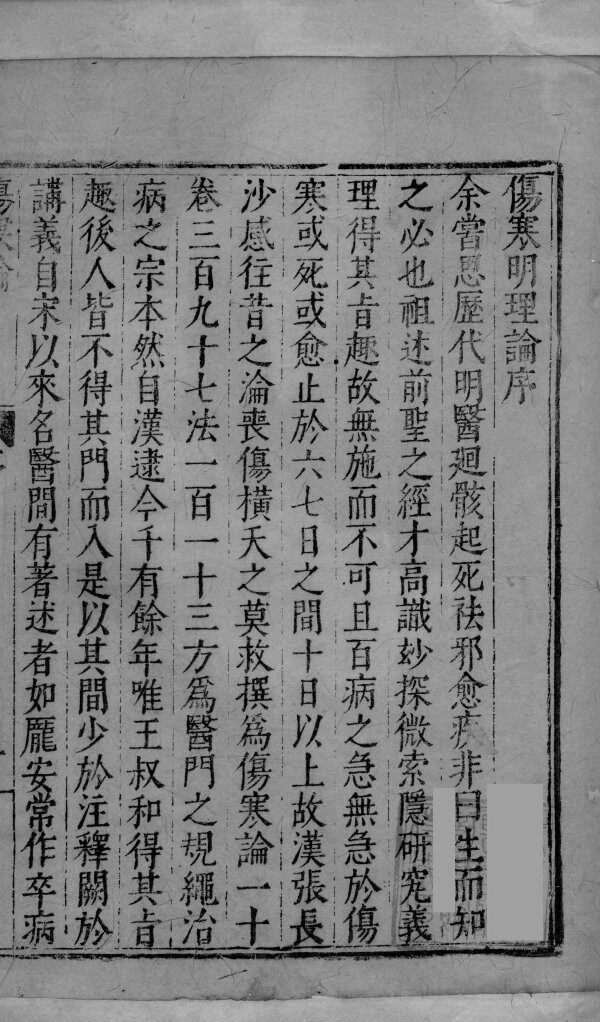 傷寒明理論序
余嘗思歷代明醫迴骸起死祛邪愈疾非曰生而知
之必也祖述前聖之經才高識妙探微索隱研究義
理得其旨趣故無施而不可且百病之急無急於傷
寒或死或愈止於六七日之間十日以上故漢張長
沙感往昔之淪喪傷橫夭之莫救撰爲傷寒論一十
卷三百九十七法一百一十三方爲醫門之規繩治
病之宗本然自漢逮今千有餘年唯王叔和得其旨
趣後人皆不得其門而入是以其間少於注釋闕於
講義自宋以來名醫間有著述者如龐安常作卒病
傷寒論